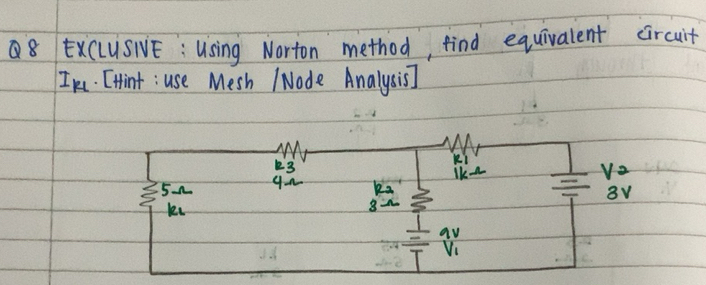 Q8 EXCLUSIVE : Using Norton method, find equivalent circuit
IRL. [Hint : use Mesh / Node Analysis]
R3
4Ω
R1
1kΩ
5Ω
RL
R2
3Ω
9V
V1
V2
3V